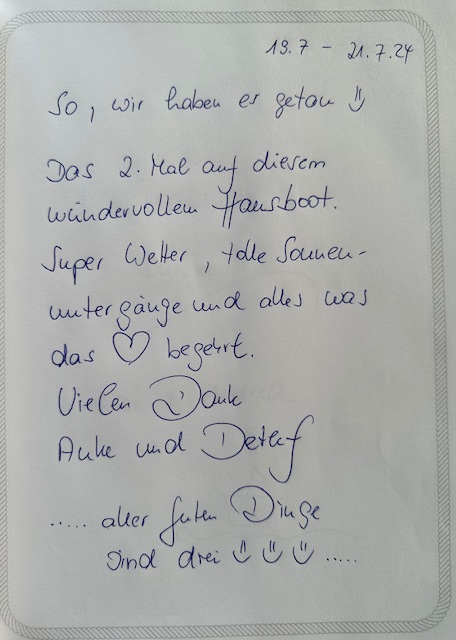 19.7 - 21.7.24
So, wir haben es getan :)
Das 2. Mal auf diesem
wundervollem Hausboot.
Super Wetter, tolle Sonnen-
untergänge und alles was
das ♡ begehrt.
Vielen Dank
Anke und Detlef
..... aller guten Dinge
sind drei :) :) :) .....